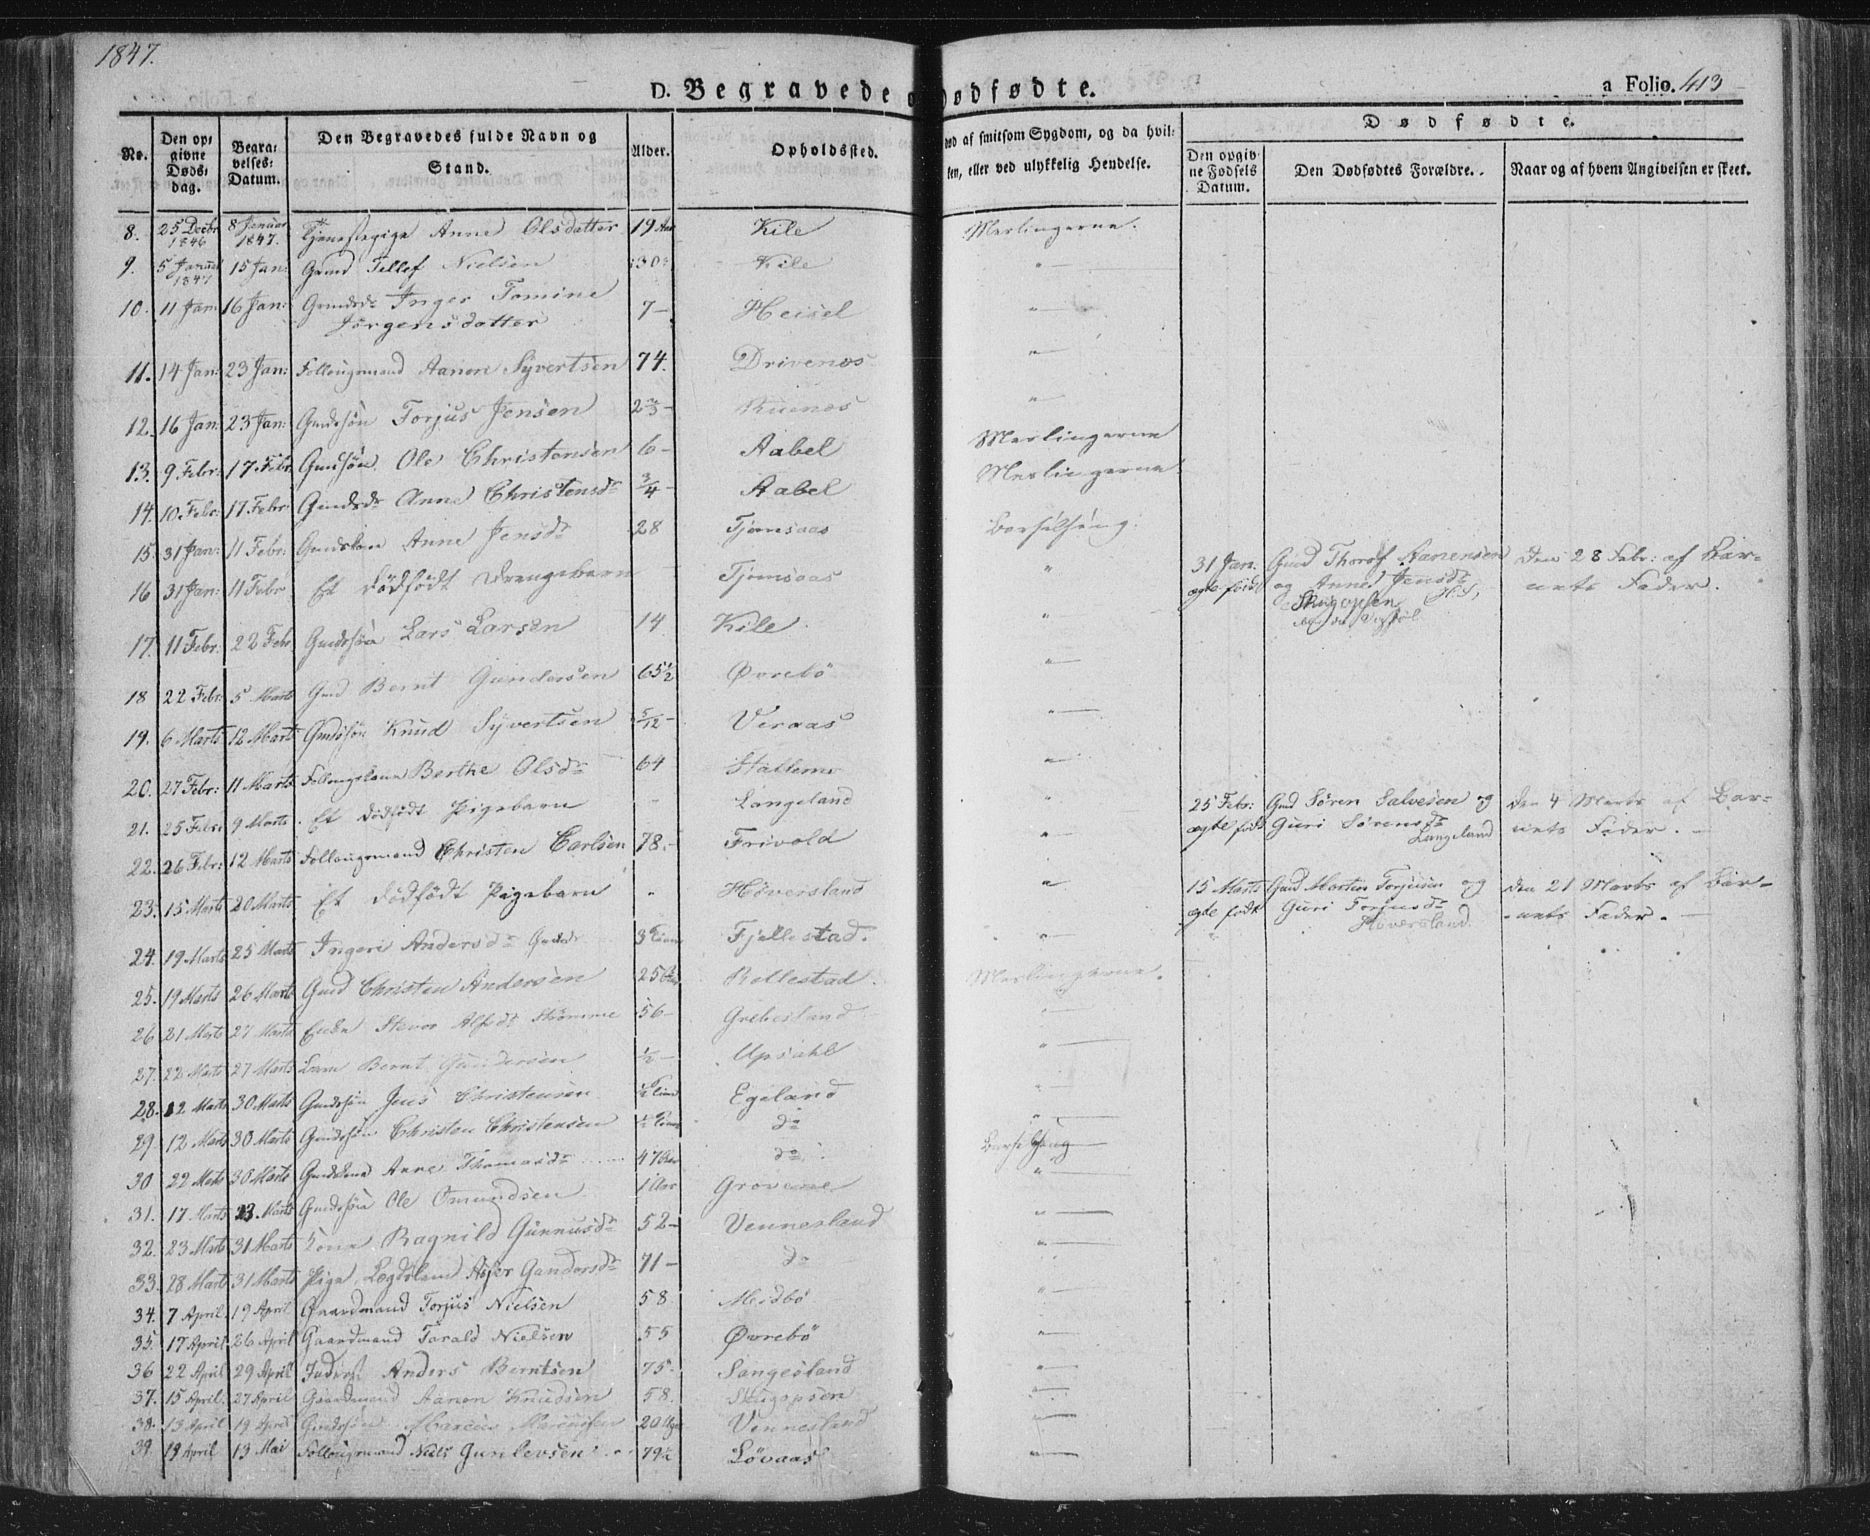 1847.
D. Begravede o Dødfødte.
a Folio. 413
No. | Den opgivne Dødsdag. | Begravelses-Datum. | Den Begravedes fulde Navn og Stand. | Alder. | Opholdssted. | død af smitsom Sygdom, og da hvilken, eller ved ulykkelig Hendelse. | Dødfødte. | Den opgivne Fødsels Datum. | Den Dødfødtes Forældre. | Naar og af hvem Angivelsen er skeet.
8. 25 Decbr 1846 8 Januar 1847. Tjenestepige Anne Olsdatter 19 Aar Kile Meslingerne.
9. 5 Januar 1847 15 Jan: Gmd Tellef Nielsen 30 Kile "
10. 11 Jan: 16 Jan: Inger Tomine
Jörgensdatter 7 – Heisel "
11. 14 Jan: 23 Jan: Follougsmand Aanon Syvertsen 74. Drivenæs "
12. 16 Jan: 23 Jan: Gmdssön Torjus Jensen Ruenæs "
13. 9 Febr. 17 Febr. Gmdssön Ole Christensen 6 – Aabel Meslingerne
14. 10 Febr. 17 Febr. Anne Christensdr 3/4 – Aabel Meslingerne
15. 31 Jan: 11 Febr: Gmdskone Anne Jensdr 28 Tjomsaas Barselseng.
16 31 Jan: 11 Febr. Et dödfödt Drengebarn – Tjomsaas " 31 Jan. ægte födt Gmd Thorof Aanensen og Anne Jensdr Skugopsen Den 28 Febr: af Barnets Fader.
17. 11 Febr: 22 Febr Gmdssön Lars Larsen 14 Kile "
18 22 Febr: 5 Marts Gmd Bernt Gundersen 65 1/2 Øvrebö "
19. 6 Marts 12 Marts Gmdssön Knud Syvertsen 5/12 – Veraas "
20. 27 Febr: 11 Marts Follougskone Berthe Olsdr 64 Stallemo "
21. 25 Febr: 9 Marts Et dödfödt Pigebarn – Langeland " 25 Febr: ægte födt Gmd Sören Salvesen og Guri Sörensdr Langeland Den 4 Marts af Barnets Fader. –
22. 26 Febr: 12 Marts Follougsmand Christen Carlsen 78. – Frivold "
23. 15 Marts 20 Marts Et dödfödt Pigebarn " Höversland " 15 Marts ægte födt Gmd Morten Torjusen og Guri Torjusdr Höversland Den 21 Marts af Barnets Fader. –
24. 19 Marts 25 Marts Ingeri Andersdr 3 Fjellestad. "
25. 19 Marts 26 Marts Gmd Christen Andersen 25 Aar Rollestad. Meslingerne.
26 21 Marts 27 Marts Enke 56 – Grebesland "
27. 22 Marts 27 Marts Bernt Gundersen 1/2 – Upsahl "
28. 12. Marts 30 Marts Gmdssön Jens Christensen 1/2 Time Egeland "
29 12 Marts 30 Marts Gmdssön Christen Christensen 1/2 Time do "
30 22 Marts 30 Marts Gmdskone Anne Thomasdr 47 Aar do Barselseng
31. 17 Marts 23. Marts Gmdssön Ole Omundsen 1 Aar Grovene "
32. 23 Marts 31 Marts Kone Ragnild Gunnusdr 52 – Vennesland "
33. 28 Marts 31 Marts Pige, Lægdslem Asjer Gundersdr 71 – do "
34. 7 April 19 April Gaardmand Torjus Nielsen 58 Meidbö "
35. 17 April 26 April Gaardmand Tarald Nielsen 55 Øvrebö "
36 22 April 29 April Inderst Anders Berntsen 75 Sangesland "
37. 15 April 27 April Gaardmand Aanon Knudsen 58. Skugopsen "
38. 13 April 19 April Gmdssön Marcus 20 Vennesland "
39. 19 April 13 Mai Follougsmand Niels Gunlevsen 79 1/2 Lövaas "